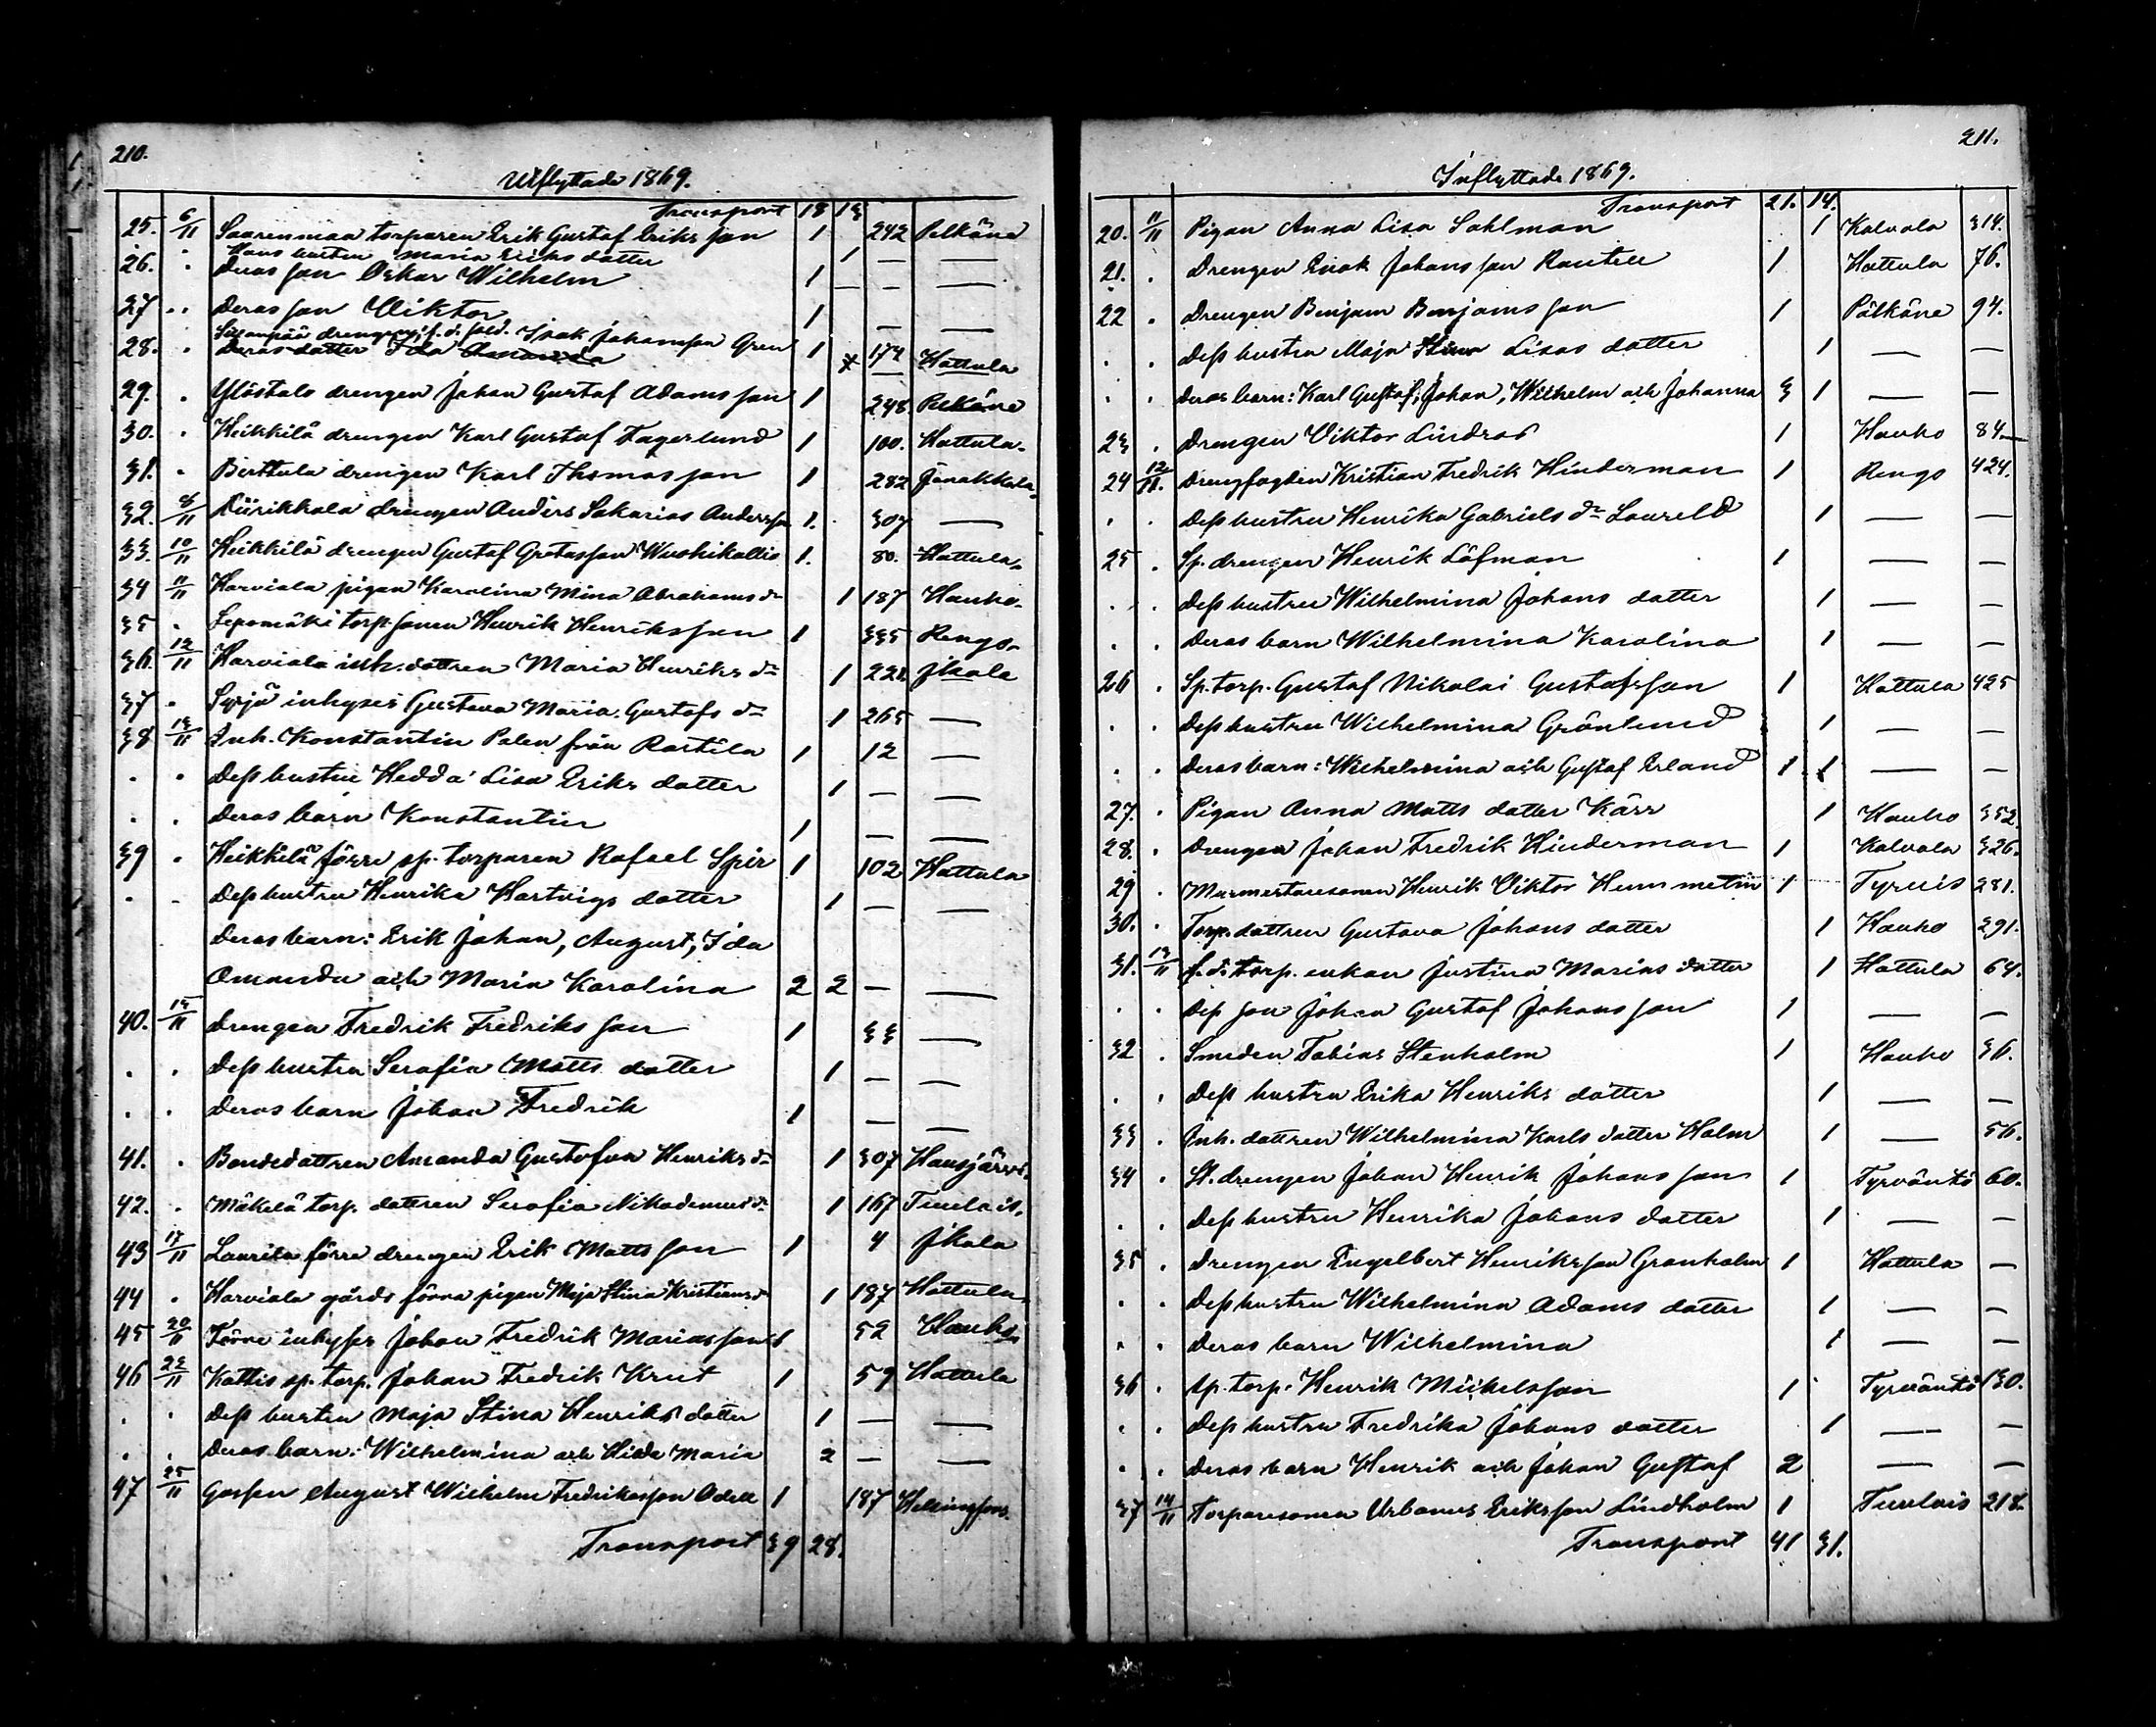 210.
Utflyttade 1869.
Transport 18 13
25. 6/11 Saarenmaa torparen Erik Gustaf Eriks son 1 242 Pelkäne
Hans hustru Maria Eriks datter 1 — —
26. . Deras son Oskar Wilhelm 1 — — —
27 . . Deras son Viktor 1 — —
drengen f. d. sold. Isak Johansson Gren
28. . Deras datter Ida Amanda 1 174 Hattula
29. . Ylöstalo drengen Johan Gustaf Adams son 1 248 Pelkäne
30. . Heikkilä drengen Karl Gustaf Fagerlund 1 100. Hattula.
31. . Birttula drengen Karl Thomas son 1 282 Janakkala.
32. 8/11 drengen Anders Sakarias Andersson 1. 307 —
33. 10/11 Heikkilä drengen Gustaf Gustafsson Wuohikallio 1. 80. Hattula.
34 11/11 Harviala pigan Karolina Mina Abrahams dr 1 187 Hauho.
35 . Lepomäki torp. sonen Henrik Henriksson 1 335 Rengo.
36. 12/11 Harviala inh. dattren Maria Henriks dr 1 221 Jkala
37 . Syrjä inhyses Gustava Maria Gustafs dr 1 265 —
38 13/11 Inh. Konstantin Palen från Rastila 1 12 —
. . Dess hustru Hedda Lisa Eriks datter 1 — —
. . Deras barn Konstantin 1 — —
39 . Heikkilä förre sp. torparen Rafael Spir 1 102 Hattula
. . Dess hustru Henrika Hartvigs datter 1 — —
Deras barn: Erik Johan, August, Ida
Amanda och Maria Karolina 2 2 — —
40. 15/11 Drengen Fredrik Fredriks son 1 33 —
. . Dess hustru Serafia Matts datter 1 — —
. . Deras barn Johan Fredrik 1 — —
41. . Bondedattren Amanda Gustafva Henriks dr 1 307 Hausjärvi.
42. . Mäkelä torp. dattren Serafia Nikodemus dr 1 167 Tuulois.
43 17/11 Laurila förre drengen Erik Matts son 1 4 Jkala
44 . Harviala gårds förra pigan Maja Stina Kristians dr 1 187 Hattula.
45 20/11 Förre inhyses Johan Fredrik Mariasson 1 52 Hauho.
46 23/11 Kattis sp. torp. Johan Fredrik Krut 1 59 Hattula
. . Dess hustru Maja Stina Henriks datter 1 — —
. . Deras barn: Wilhelmina och Hilda Maria 2 — —
47 25/11 Gossen August Wilhelm Fredriksson Odell 1 187 Helsingfors.
Transport 39 28.
211.
Inflyttade 1869.
Transport 21. 14.
20. 11/11 Pigan Anna Lisa Sahlman 1 Kalvola 314.
21. . Drengen Enok Johans son Rautell 1 Hattula 76.
22 . Drengen Benjam Benjams son 1 Pälkäne 94.
. . Dess hustru Maja Stina Lisas datter 1 — —
. . Deras barn: Karl Gustaf, Johan, Wilhelm och Johanna 3 1 — —
23 . Drengen Viktor Lindros 1 Hauho 84
24 12/11. Drengfogden Kristian Fredrik Hinderman 1 Rengo 424.
. . Dess hustru Henrika Gabriels dr Laureld 1 — —
25 . Sp. drengen Henrik Löfman 1 — —
. . Dess hustru Wilhelmina Johans datter 1 — —
. . Deras barn Wilhelmina Karolina 1 — —
26 . Sp. torp. Gustaf Nikolai Gustafsson 1 Hattula 425
. . Dess hustru Wilhelmina Grönlund 1 — —
. . Deras barn: Wilhelmina och Gustaf Erland 1 1 — —
27. . Pigan Anna Matts datter Kärr 1 Hauho 352.
28. . Drengen Johan Fredrik Hinderman 1 Kalvola 326.
29 . Murmestaresonen Henrik Viktor Hemmetin 1 Tyrvis 281.
30. . Torp. dattren Gustava Johans datter 1 Hauho 291.
31. 13/11 f. d. torp. enkan Justina Marias datter 1 Hattula 64.
. . Dess son Johan Gustaf Johans son 1 — —
32 . Smeden Tobias Stenholm 1 Hauho 36.
. . Dess hustru Erika Henriks datter 1 — —
33 . Inh. dattren Wilhelmina Karls datter Holm 1 — 56.
34 . St. drengen Johan Henrik Johans son 1 Tyrväntö 60.
. . Dess hustru Henrika Johans datter 1 — —
35 . Drengen Engelbert Henriksson Granholm 1 Hattula —
. . Dess hustru Wilhelmina Adams datter 1 — —
. . Deras barn Wilhelmina 1 — —
36 . Sp. torp. Henrik Mickelsson 1 Tyrväntö 130.
. . Dess hustru Fredrika Johans datter 1 — —
. . Deras barn Henrik och Johan Gustaf 2 — —
37 14/11 Torparesonen Urbanus Eriksson Lindholm 1 Tuulois 218.
Transport 41 31.